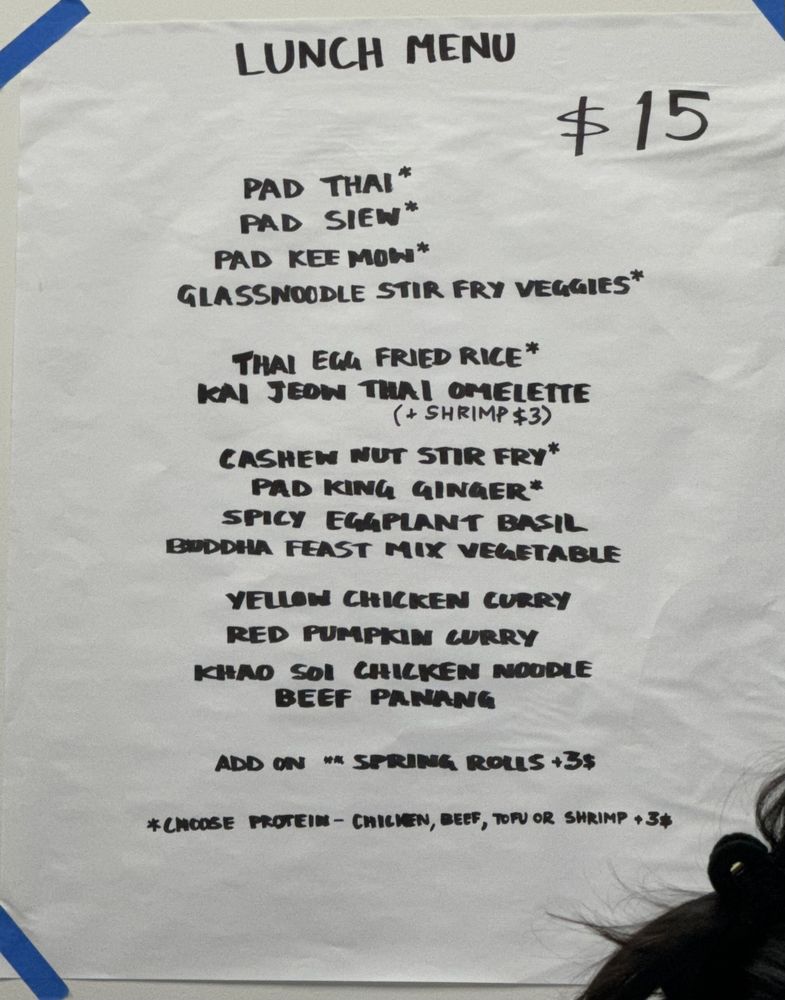 LUNCH MENU
$15
PAD THAI*
PAD SIEW*
PAD KEE MOW*
GLASSNOODLE STIR FRY VEGGIES*
THAI EGG FRIED RICE*
KAI JEOW THAI OMELETTE
(+ SHRIMP $3)
CASHEW NUT STIR FRY*
PAD KING GINGER*
SPICY EGGPLANT BASIL
BUDDHA FEAST MIX VEGETABLE
YELLOW CHICKEN CURRY
RED PUMPKIN CURRY
KHAO SOI CHICKEN NOODLE
BEEF PANANG
ADD ON ** SPRING ROLLS +3$
*CHOOSE PROTEIN - CHICKEN, BEEF, TOFU OR SHRIMP +3$